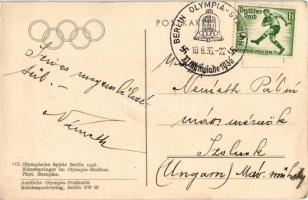 POSTKARTE
BERLIN OLYMPIA-ST
10.8.36.-22
Olympiade 1936
Deutsches Reich
6
Szives
Németh
Németh Pál
máv. mérnök
Szolnok
(Ungarn) Máv. műhely
113. Olympische Spiele Berlin 1936.
Kunstspringer im Olympia-Stadion.
Phot. Stempka.
Amtliche Olympia-Postkarte
Reichssportverlag, Berlin SW 68